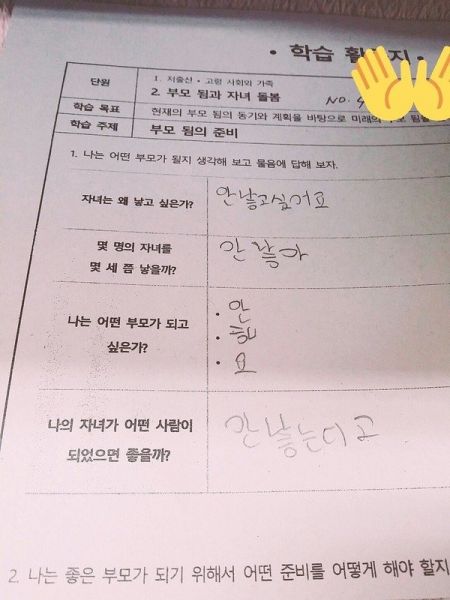 • 학습 활동지 •
단원
1. 저출산•고령 사회와 가족
2. 부모 됨과 자녀 돌봄
NO.
학습 목표
현재의 부모 됨의 동기와 계획을 바탕으로 미래의
학습 주제
부모 됨의 준비
1. 나는 어떤 부모가 될지 생각해 보고 물음에 답해 보자.
자녀는 왜 낳고 싶은가?
안낳고싶어요
몇 명의 자녀를
몇 세 쯤 낳을까?
안 낳아
나는 어떤 부모가 되고
싶은가?
• 안
• 해
• 요
나의 자녀가 어떤 사람이
되었으면 좋을까?
안낳는다고
2. 나는 좋은 부모가 되기 위해서 어떤 준비를 어떻게 해야 할지